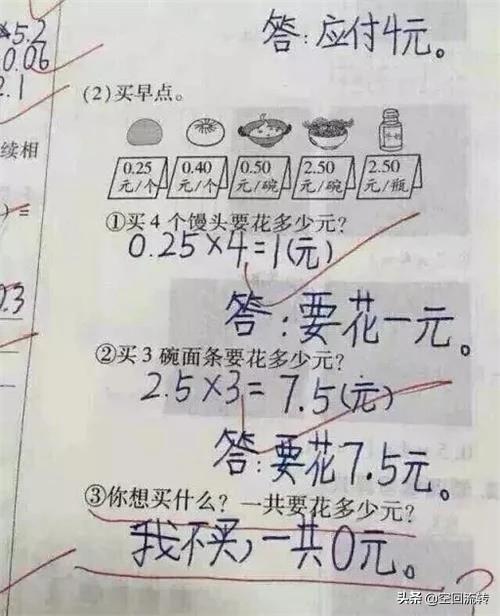 ×5.2
0.06
2.1
答:应付4元。
(2)买早点。
续相
0.25 元/个
0.40 元/个
0.50 元/碗
2.50 元/碗
2.50 元/瓶
①买4个馒头要花多少元?
0.25×4=1(元)
0.3
答:要花一元。
②买3碗面条要花多少元?
2.5×3=7.5(元)
答:要花7.5元。
③你想买什么?一共要花多少元?
我不买,一共0元。
头条 @空回流转